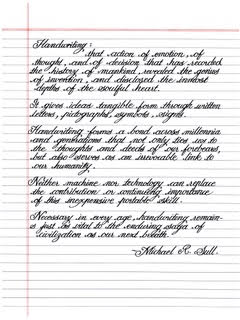 Handwriting:
that action of emotion, of
thought, and of decision that has recorded
the history of mankind, revealed the genius
of invention, and disclosed the inmost
depths of the soulful heart.
It gives ideas tangible form through written
letters, pictographs, symbols, signs.
Handwriting forms a bond across millennia
and generations that not only ties us to
the thoughts and deeds of our forebears,
but also serves as an irrevocable link to
our humanity.
Neither machine nor technology can replace
the contribution or continuing importance
of this inexpensive portable skill.
Necessary in every age, handwriting remains
just as vital to the enduring saga of
civilization as our next breath.
~Michael R. Sull.